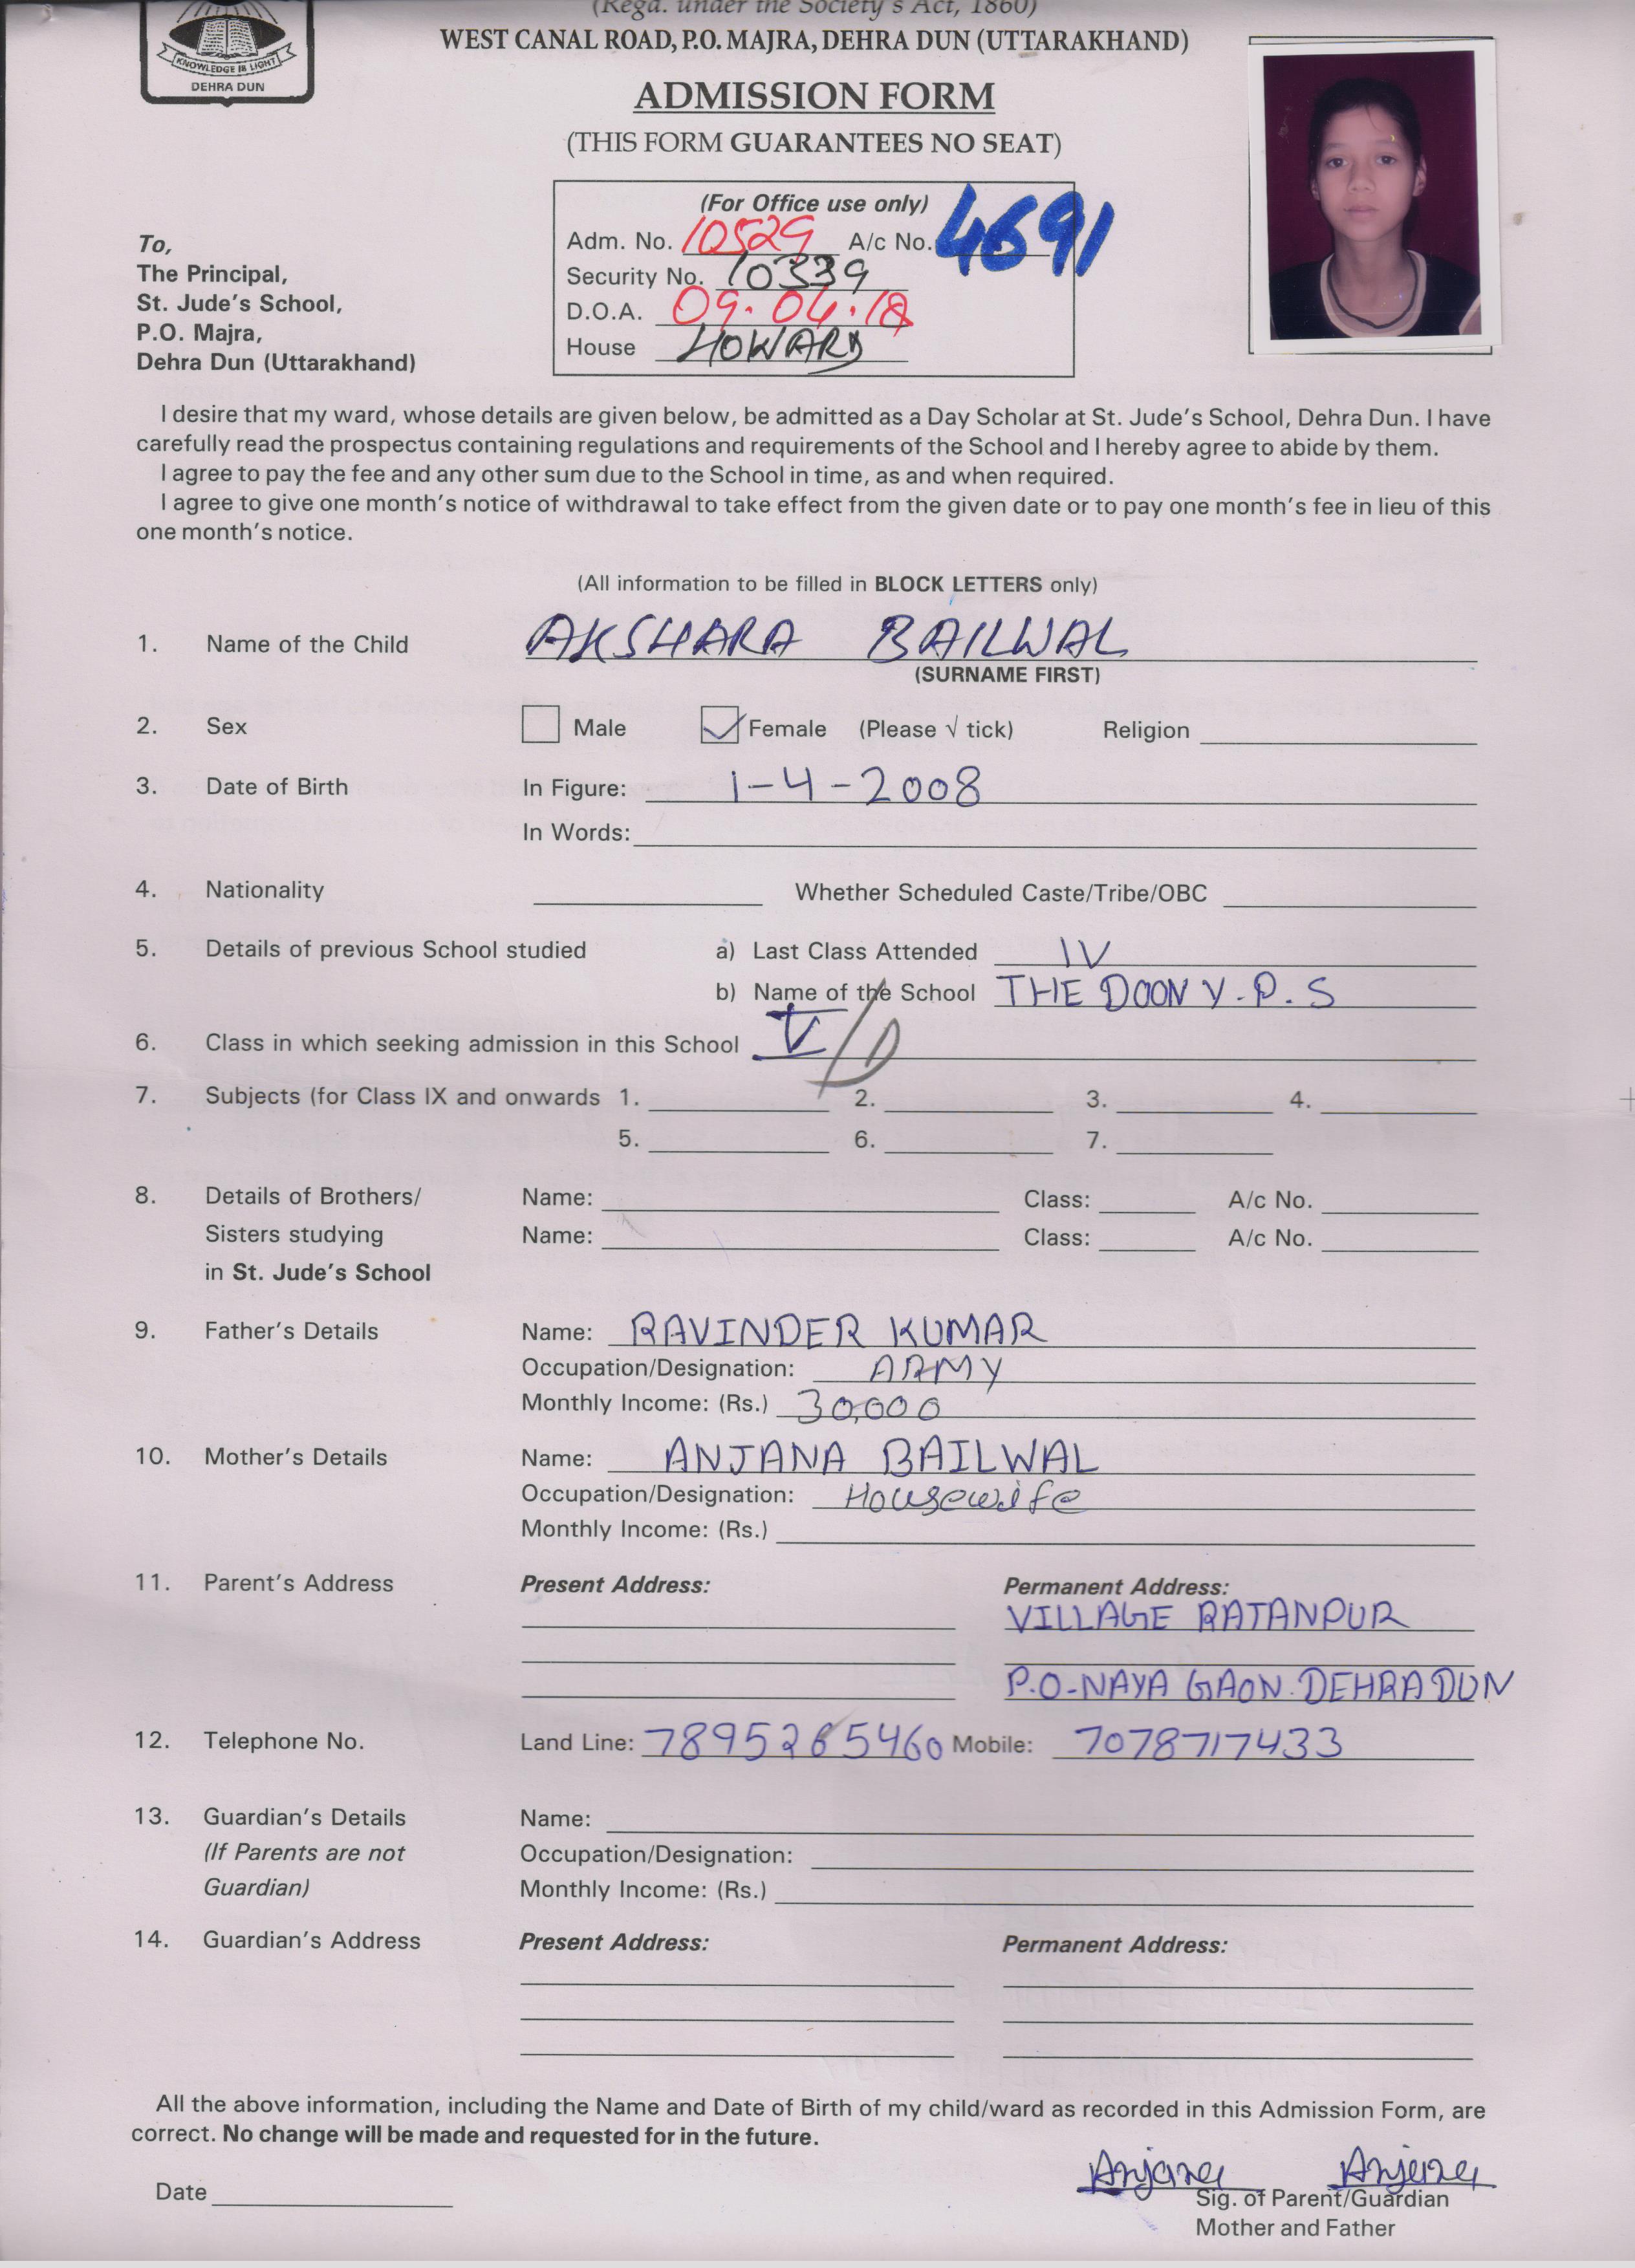 (Regd. under the Society's Act, 1860)
WEST CANAL ROAD, P.O. MAJRA, DEHRA DUN (UTTARAKHAND)
KNOWLEDGE IS LIGHT
DEHRA DUN
ADMISSION FORM
(THIS FORM GUARANTEES NO SEAT)
(For Office use only)
Adm. No. 10529 A/c No. 4691
Security No. 10339
D.O.A. 09.04.18
House HOWARD
To,
The Principal,
St. Jude's School,
P.O. Majra,
Dehra Dun (Uttarakhand)
I desire that my ward, whose details are given below, be admitted as a Day Scholar at St. Jude's School, Dehra Dun. I have
carefully read the prospectus containing regulations and requirements of the School and I hereby agree to abide by them.
I agree to pay the fee and any other sum due to the School in time, as and when required.
I agree to give one month's notice of withdrawal to take effect from the given date or to pay one month's fee in lieu of this
one month's notice.
(All information to be filled in BLOCK LETTERS only)
1. Name of the Child AKSHARA BAILWAL
(SURNAME FIRST)
2. Sex Male Female (Please √ tick) Religion
3. Date of Birth In Figure: 1-4-2008
In Words:
4. Nationality Whether Scheduled Caste/Tribe/OBC
5. Details of previous School studied a) Last Class Attended IV
b) Name of the School THE DOON V.P.S
6. Class in which seeking admission in this School V/D
7. Subjects (for Class IX and onwards 1. 2. 3. 4.
5. 6. 7.
8. Details of Brothers/ Name: Class: A/c No.
Sisters studying Name: Class: A/c No.
in St. Jude's School
9. Father's Details Name: RAVINDER KUMAR
Occupation/Designation: ARMY
Monthly Income: (Rs.) 30,000
10. Mother's Details Name: ANJANA BAILWAL
Occupation/Designation: Housewife
Monthly Income: (Rs.)
11. Parent's Address Present Address: Permanent Address:
VILLAGE RATANPUR
P.O-NAYA GAON. DEHRADUN
12. Telephone No. Land Line: 7895265460 Mobile: 7078717433
13. Guardian's Details Name:
(If Parents are not Occupation/Designation:
Guardian) Monthly Income: (Rs.)
14. Guardian's Address Present Address: Permanent Address:
All the above information, including the Name and Date of Birth of my child/ward as recorded in this Admission Form, are
correct. No change will be made and requested for in the future.
Anjana Anjana
Date Sig. of Parent/Guardian
Mother and Father